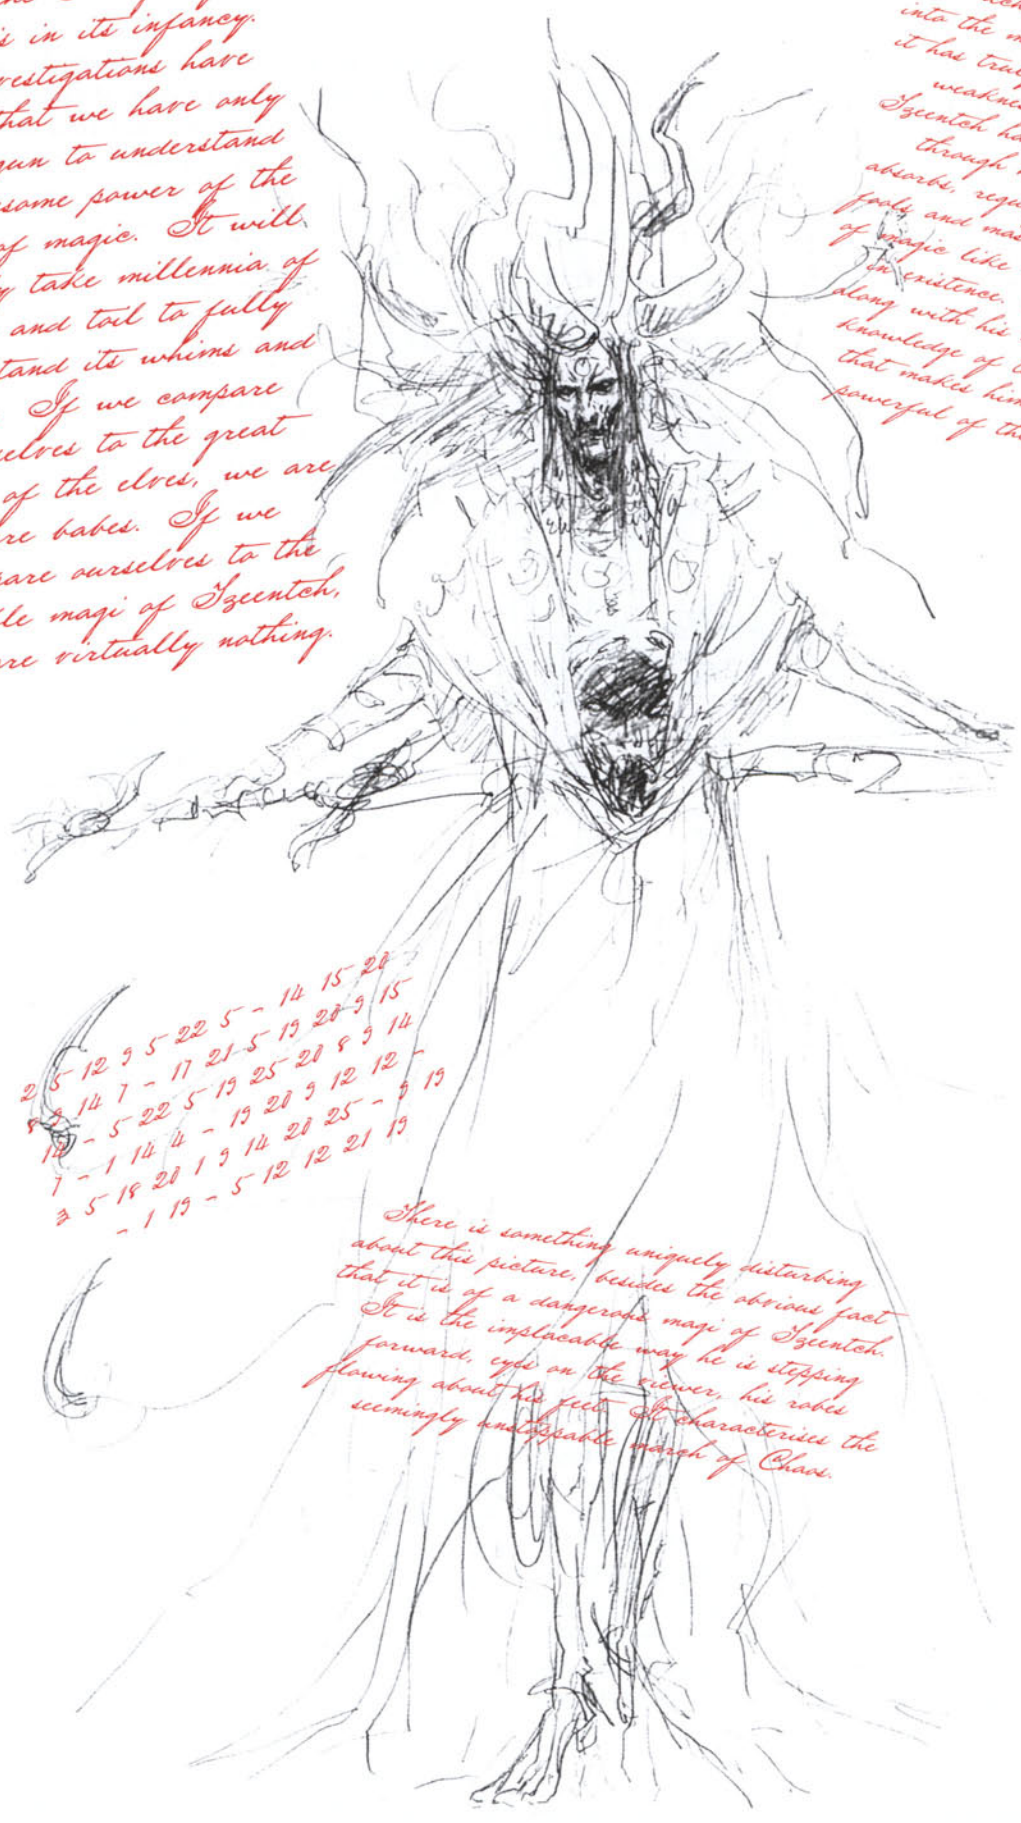 is in its infancy.
vestigations have
that we have only
gun to understand
some power of the
of magic. It will
y take millennia of
and toil to fully
tand its whims and
If we compare
selves to the great
of the elves, we are
re babes. If we
pare ourselves to the
le magi of Tzeentch,
re virtually nothing.
into the m
it has truly
weakne
Tzeentch ha
through
absorbs, requ
fools, and mas
of magic like
in existence.
along with his
knowledge of
that makes him
powerful of the
2 5 12 9 5 22 5 - 14 15 20
8 9 14 7 - 17 21 5 19 20 9 15
14 - 5 22 5 19 25 20 8 9 14
7 - 1 14 4 - 19 20 9 12 12 -
3 5 18 20 1 9 14 20 25 - 9 19
- 1 19 - 5 12 12 21 19
There is something uniquely disturbing
about this picture, besides the obvious fact
that it is of a dangerous magi of Tzeentch.
It is the implacable way he is stepping
forward, eyes on the viewer, his robes
flowing about his feet. It characterises the
seemingly unstoppable march of Chaos.